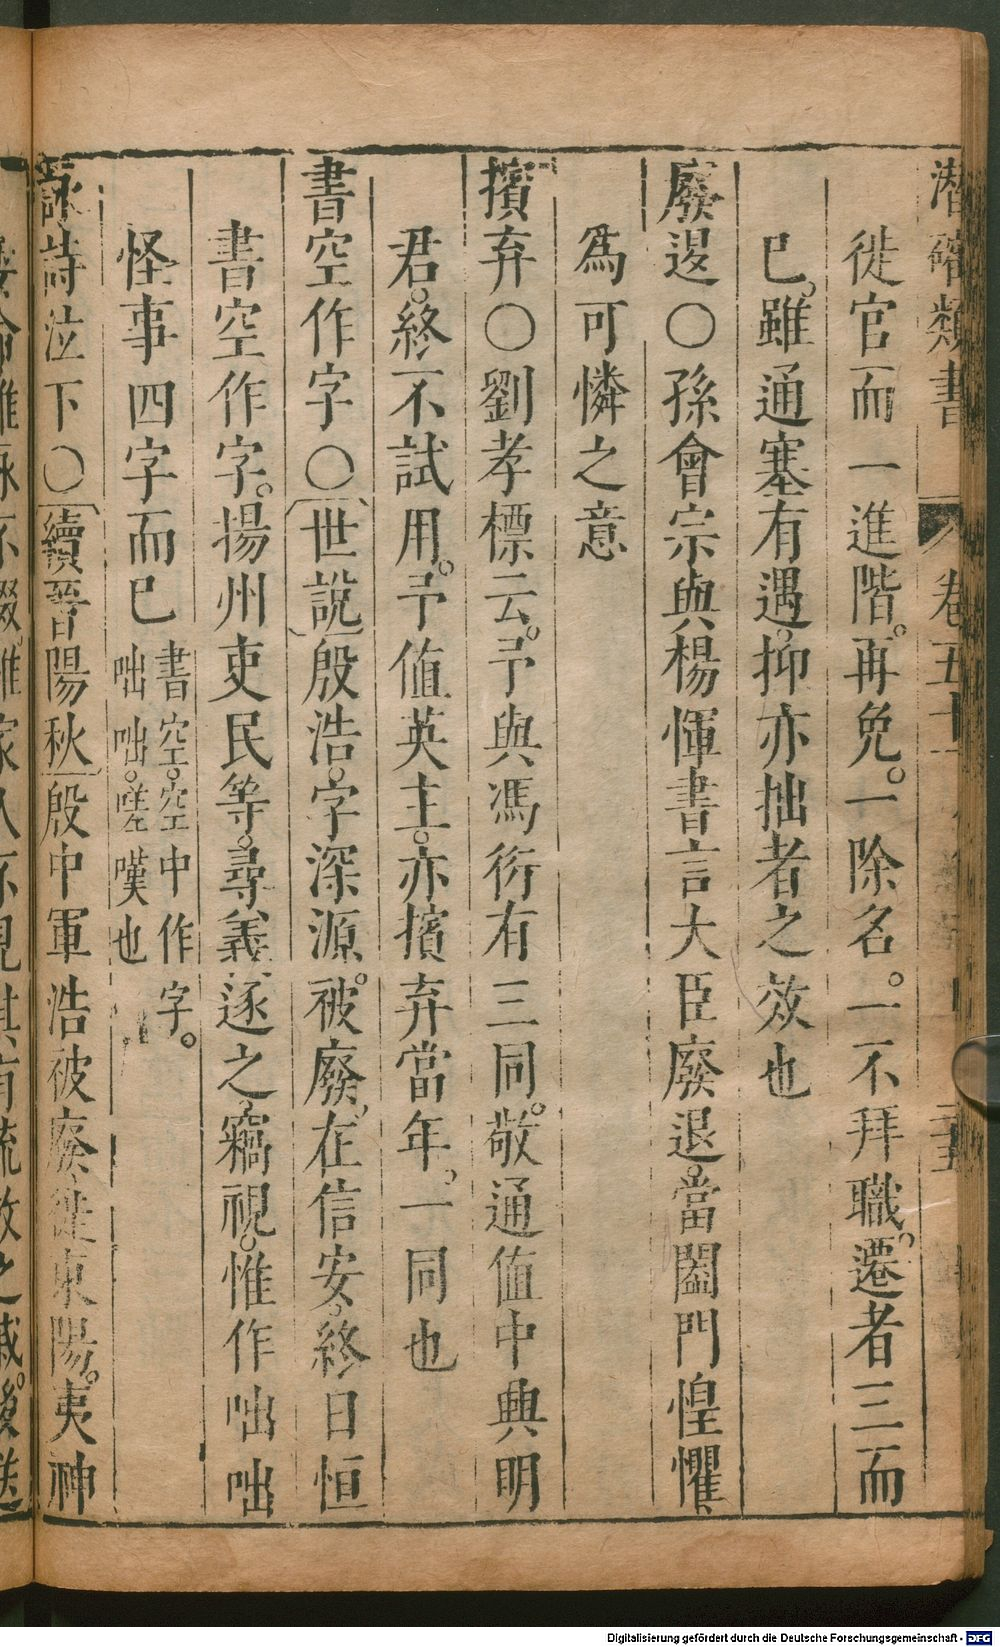 潛確類書 卷五十 二十五
徙官而一進階。再免。一除名。一不拜職。遷者三而
已。雖通塞有遇。抑亦拙者之效也
廢退〇孫會宗與楊惲書言大臣廢退。當闔門惶懼
爲可憐之意
擯弃〇劉孝標云。予與馮衍有三同。敬通值中興明
君。終不試用。予值英主。亦擯弃當年。一同也
書空作字〇世說殷浩。字深源。被廢。在信安。終日恒
書空作字。揚州吏民等。尋義逐之。竊視。惟作咄咄
怪事四字而已書空。空中作字。咄咄。嗟嘆也
詠詩泣下〇續晉陽秋殷中軍浩被廢。徙東陽。夷神
Digitalisierung gefördert durch die Deutsche Forschungsgemeinschaft - DFG